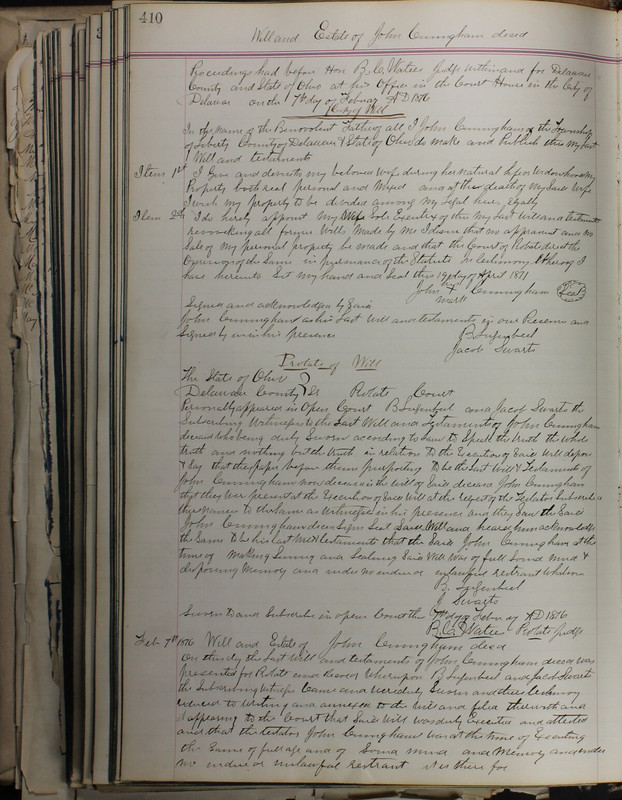 410
Will and Estate of John Cunningham decsd
Proceedings had before Hon B. C. Waters Judge within and for Delaware
County and State of Ohio at his Office in the Court House in the City of
Delaware on the 7th day of February AD 1876
Copy of Will
In the name of the Benevolent Father of all I John Cunningham of the Township
of Liberty County of Delaware & State of Ohio do make and Publish this my last
Will and testament
Item 1st I Give and devise to my beloved wife during her natural life or Widowhood my
Property both real personal and Mixed and at the death of my Said Wife
I wish my property to be divided among my Legal heirs equally
Item 2d I do hereby appoint My Wife sole Executry of this my last Will and testament
revoking all former Wills Made by Me I desire that no appraisment and no
Sale of my personal property be made and that the Court of Probate direct the
Omission of the Same in pursuance of the Statute In testimony Whereof I
have hereunto Set my hand and Seal this 19 day of April 1871
John Cunningham Seal
mark
Signed and acknowledged by Said
John Cunningham as his Last Will and testament in our Presence and
Signed by us in his presence
B Lufenbeel
Jacob Swarts
Probate of Will
The State of Ohio
Delaware County SS Probate Court
Personally appeared in Open Court B Lufenbeel and Jacob Swarts the
Subscribing Witnesses to the Last Will and Testament of John Cunningham
deceased who being duly Sworn according to Law to Speak the truth the whole
truth and nothing but the truth in relation to the Execution of Said Will depose
& Say that the paper before them purporting to be the Last Will & Testament of
John Cunningham now deceased is the Will of Said deceased John Cunningham
that they were present at the Execution of Said Will at the request of the Testator Subscribed
their Names to the Same as Witnesses in his presence and they Saw the Said
John Cunningham decsd Sign Seal Said Will and heard him acknowledge
the Same to be his last Will & testament that the Said John Cunningham at the
time of Making Signing and Sealing Said Will Was of full Sound Mind &
disposing Memory and under no undue or unlawful restraint whatever
B. Lufenbeel
J Swarts
Sworn to and Subscribed in open Court this 7th day of February AD 1876
B. C. Waters Probate Judge
Feb 7th 1876 Will and Estate of John Cunningham decsd
On this day the Last Will and testament of John Cunningham decsd was
Presented for Probate and Record Whereupon B Lufenbeel and Jacob Swarts
the Subscribing Witnesses Came and were duly Sworn and their testimony
reduced to Writing and annexed to the Will and filed therewith and
it appearing to the Court that Said Will was duly Executed and attested
and that the testator John Cunningham was at the time of Executing
the Same of full age and of Sound mind and Memory and under
no undue or unlawful restraint it is there for